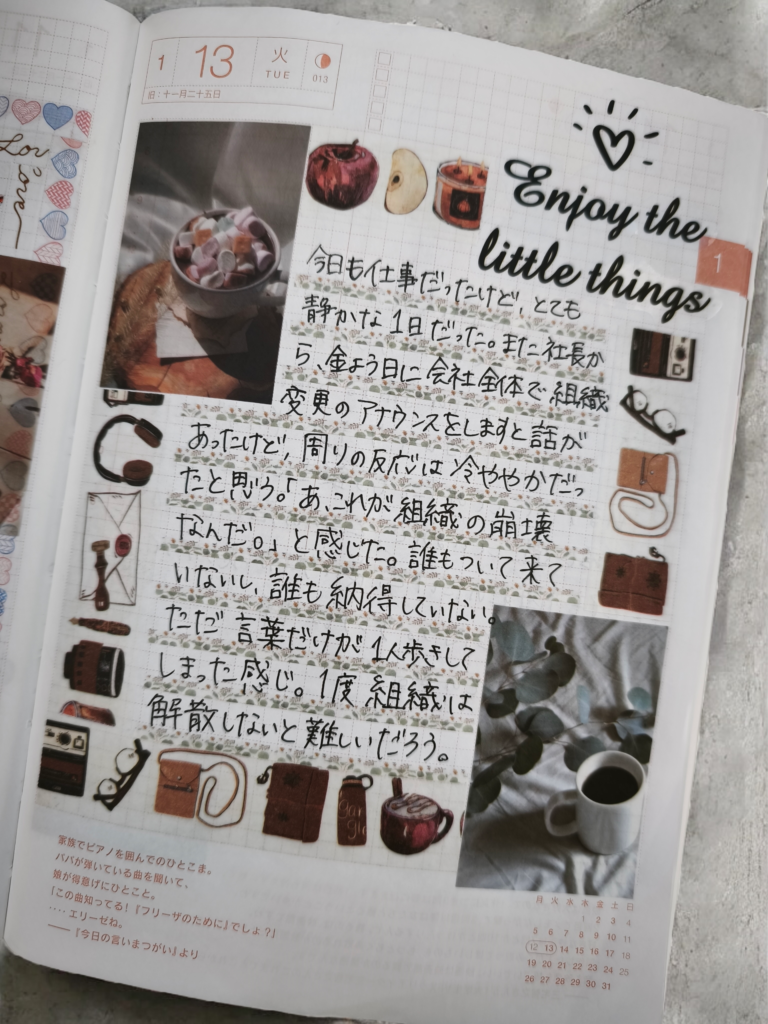 1 13 火 TUE 013
旧：十一月二十五日
Enjoy the
little things
1
今日も仕事だったけど、とても
静かな1日だった。また社長か
ら、金よう日に会社全体で組織
変更のアナウンスをしますと話が
あったけど、周りの反応は冷ややかだっ
たと思う。「あ、これが組織の崩壊
なんだ。」と感じた。誰もついて来て
いないし、誰も納得していない。
ただ言葉だけが1人歩きして
しまった感じ。1度組織は
解散しないと難しいだろう。
家族でピアノを囲んでのひとこま。
パパが弾いている曲を聞いて、
娘が得意げにひとこと。
「この曲知ってる！『フリーザのために』でしょ？」
‥‥エリーゼね。
——『今日の言いまつがい』より
月 火 水 木 金 土 日
1 2 3 4
5 6 7 8 9 10 11
12 13 14 15 16 17 18
19 20 21 22 23 24 25
26 27 28 29 30 31